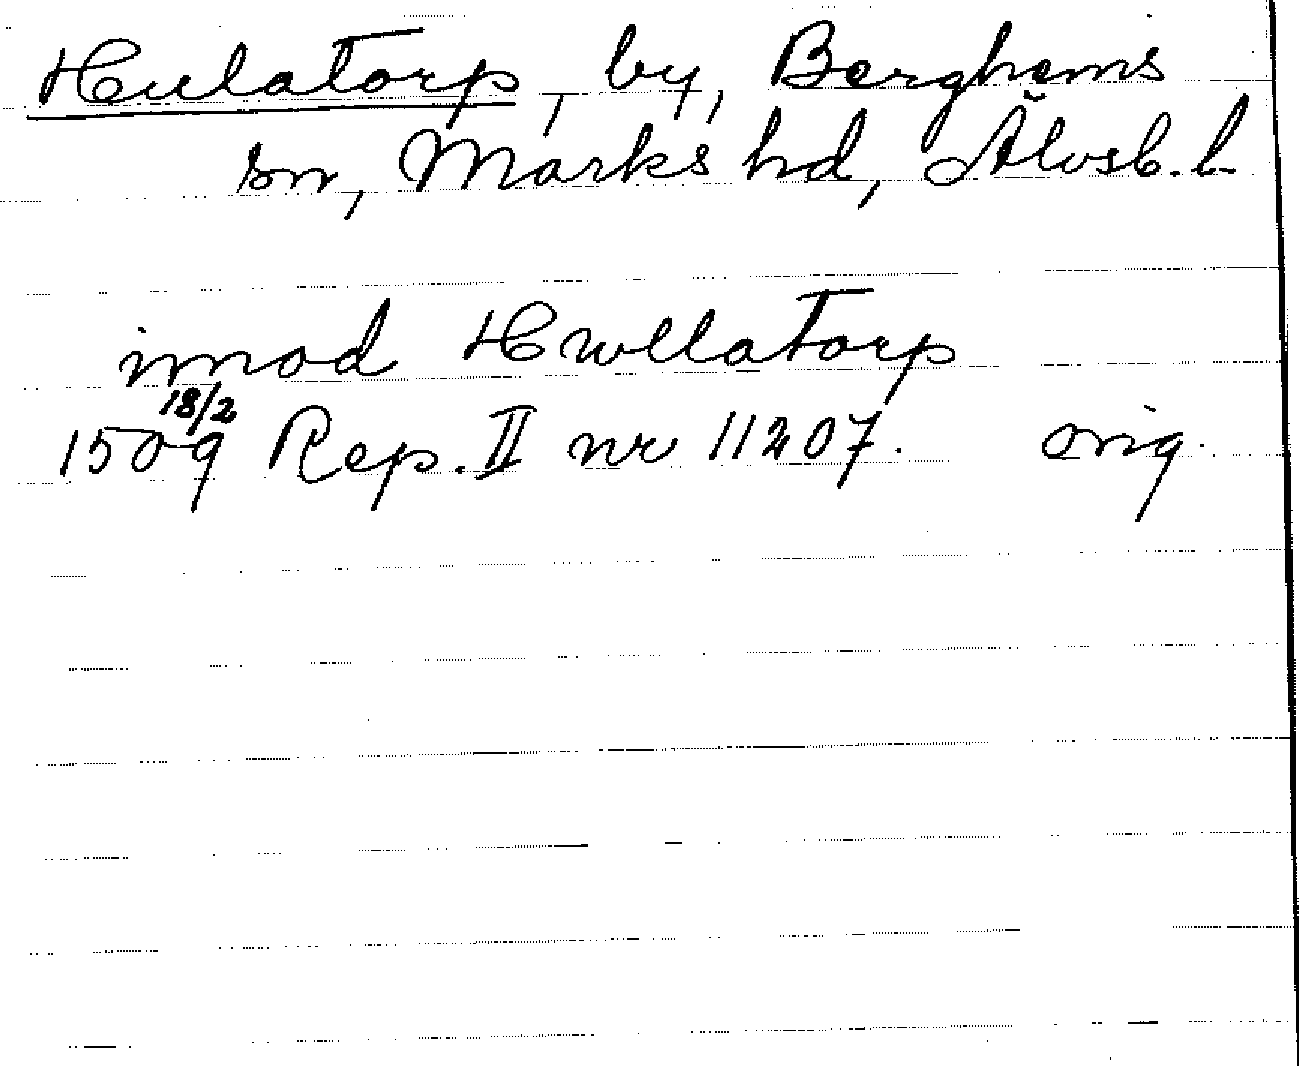 Hulatorp, by, Berghems
sn, Marks hd, Älvsb. l.
imod Hwllatorp
18/2
1509 Rep. II nr 11207. orig.